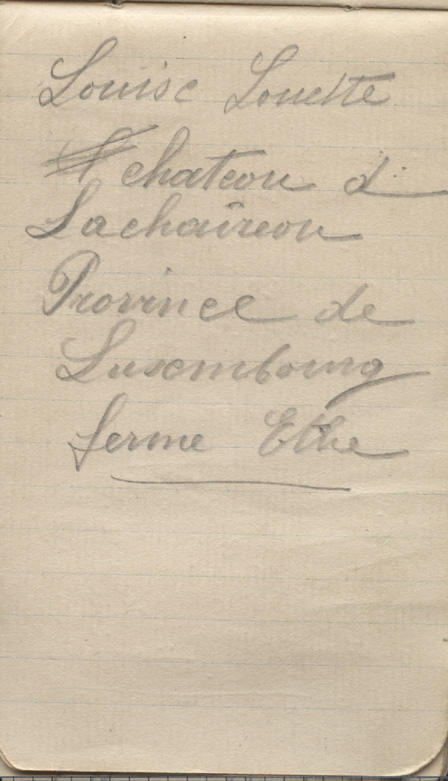 Louise Louette
chateau d
Lachaireau
Province de
Luxembourg
ferme Ethe